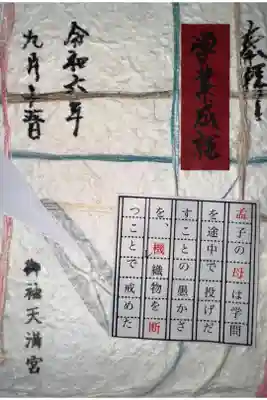 奉拝
学業成就
令和六年
御袖天満宮
孟子の母は学問
を途中で投げだ
すことの愚かさ
を、機織物を断
つことで戒めた